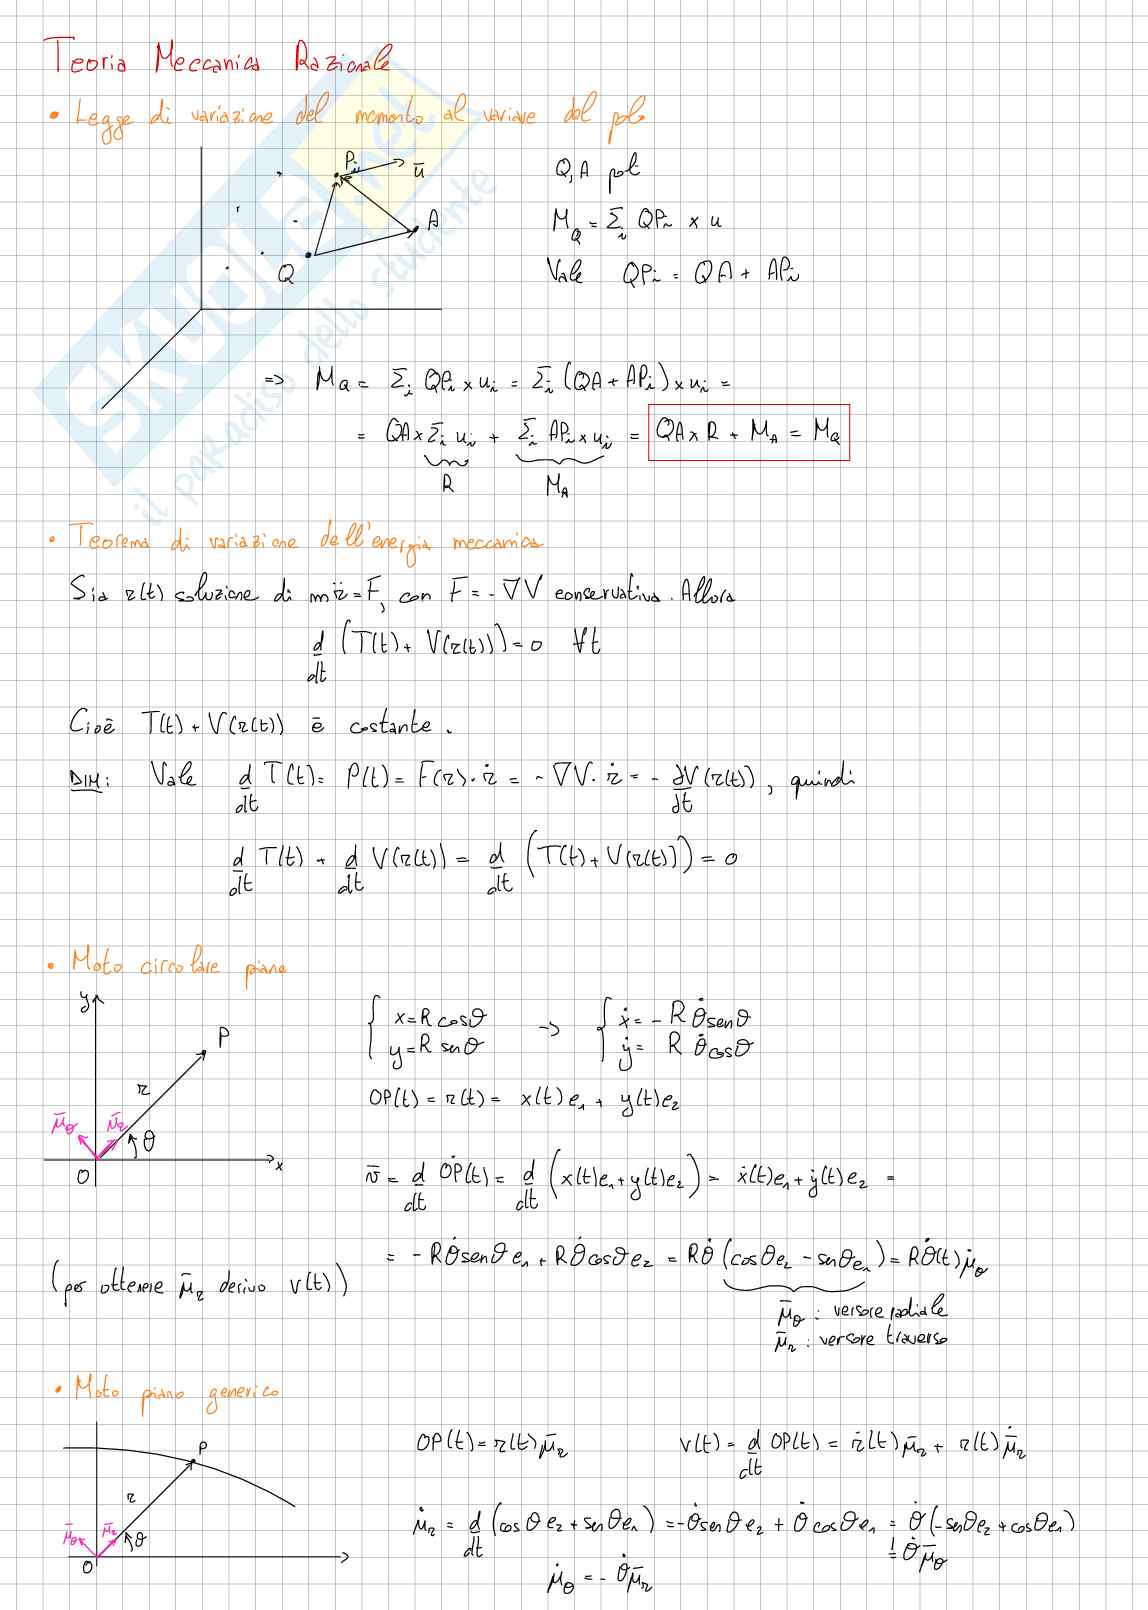 Teoria Meccanica Razionale
• Legge di variazione del momento al variare del polo
P_i
ū
A
Q
Q, A poli
M_Q = Σ_i QP_i × u
Vale QP_i = QA + AP_i
=> M_Q = Σ_i QP_i × u_i = Σ_i (QA + AP_i) × u_i =
= QA × Σ_i u_i + Σ_i AP_i × u_i = QA × R + M_A = M_Q
R
M_A
• Teorema di variazione dell'energia meccanica
Sia r(t) soluzione di mr̈ = F, con F = -∇V conservativa. Allora
d/dt (T(t) + V(r(t))) = 0 ∀t
Cioè T(t) + V(r(t)) è costante.
DIM: Vale d/dt T(t) = P(t) = F(r) · ṙ = -∇V · ṙ = - ∂V/∂t (r(t)), quindi
d/dt T(t) + d/dt V(r(t)) = d/dt (T(t) + V(r(t))) = 0
• Moto circolare piano
y
P
r
μ̄_θ
μ̄_r
θ
O
x
{ x = R cosθ
y = R senθ
-> { ẋ = - R θ̇ senθ
ẏ = R θ̇ cosθ
OP(t) = r(t) = x(t) e_1 + y(t) e_2
v̄ = d/dt OP(t) = d/dt (x(t)e_1 + y(t)e_2) = ẋ(t)e_1 + ẏ(t)e_2 =
= - Rθ̇ senθ e_1 + Rθ̇ cosθ e_2 = Rθ̇ (cosθ e_2 - senθ e_1) = Rθ̇(t) μ_θ
(per ottenere μ̄_r derivo v(t))
μ̄_θ : versore radiale
μ̄_r : versore traverso
• Moto piano generico
P
r
μ̄_θ
μ̄_r
θ
O
OP(t) = r(t) μ̄_r
v(t) = d/dt OP(t) = ṙ(t) μ̄_r + r(t) μ̄̇_r
μ̇_r = d/dt (cosθ e_2 + senθ e_1) = -θ̇ senθ e_2 + θ̇ cosθ e_1 = θ̇ (-senθ e_2 + cosθ e_1)
= θ̇ μ̄_θ
μ̇_θ = - θ̇ μ̄_r
SKUOLA.net
il paradiso dello studente